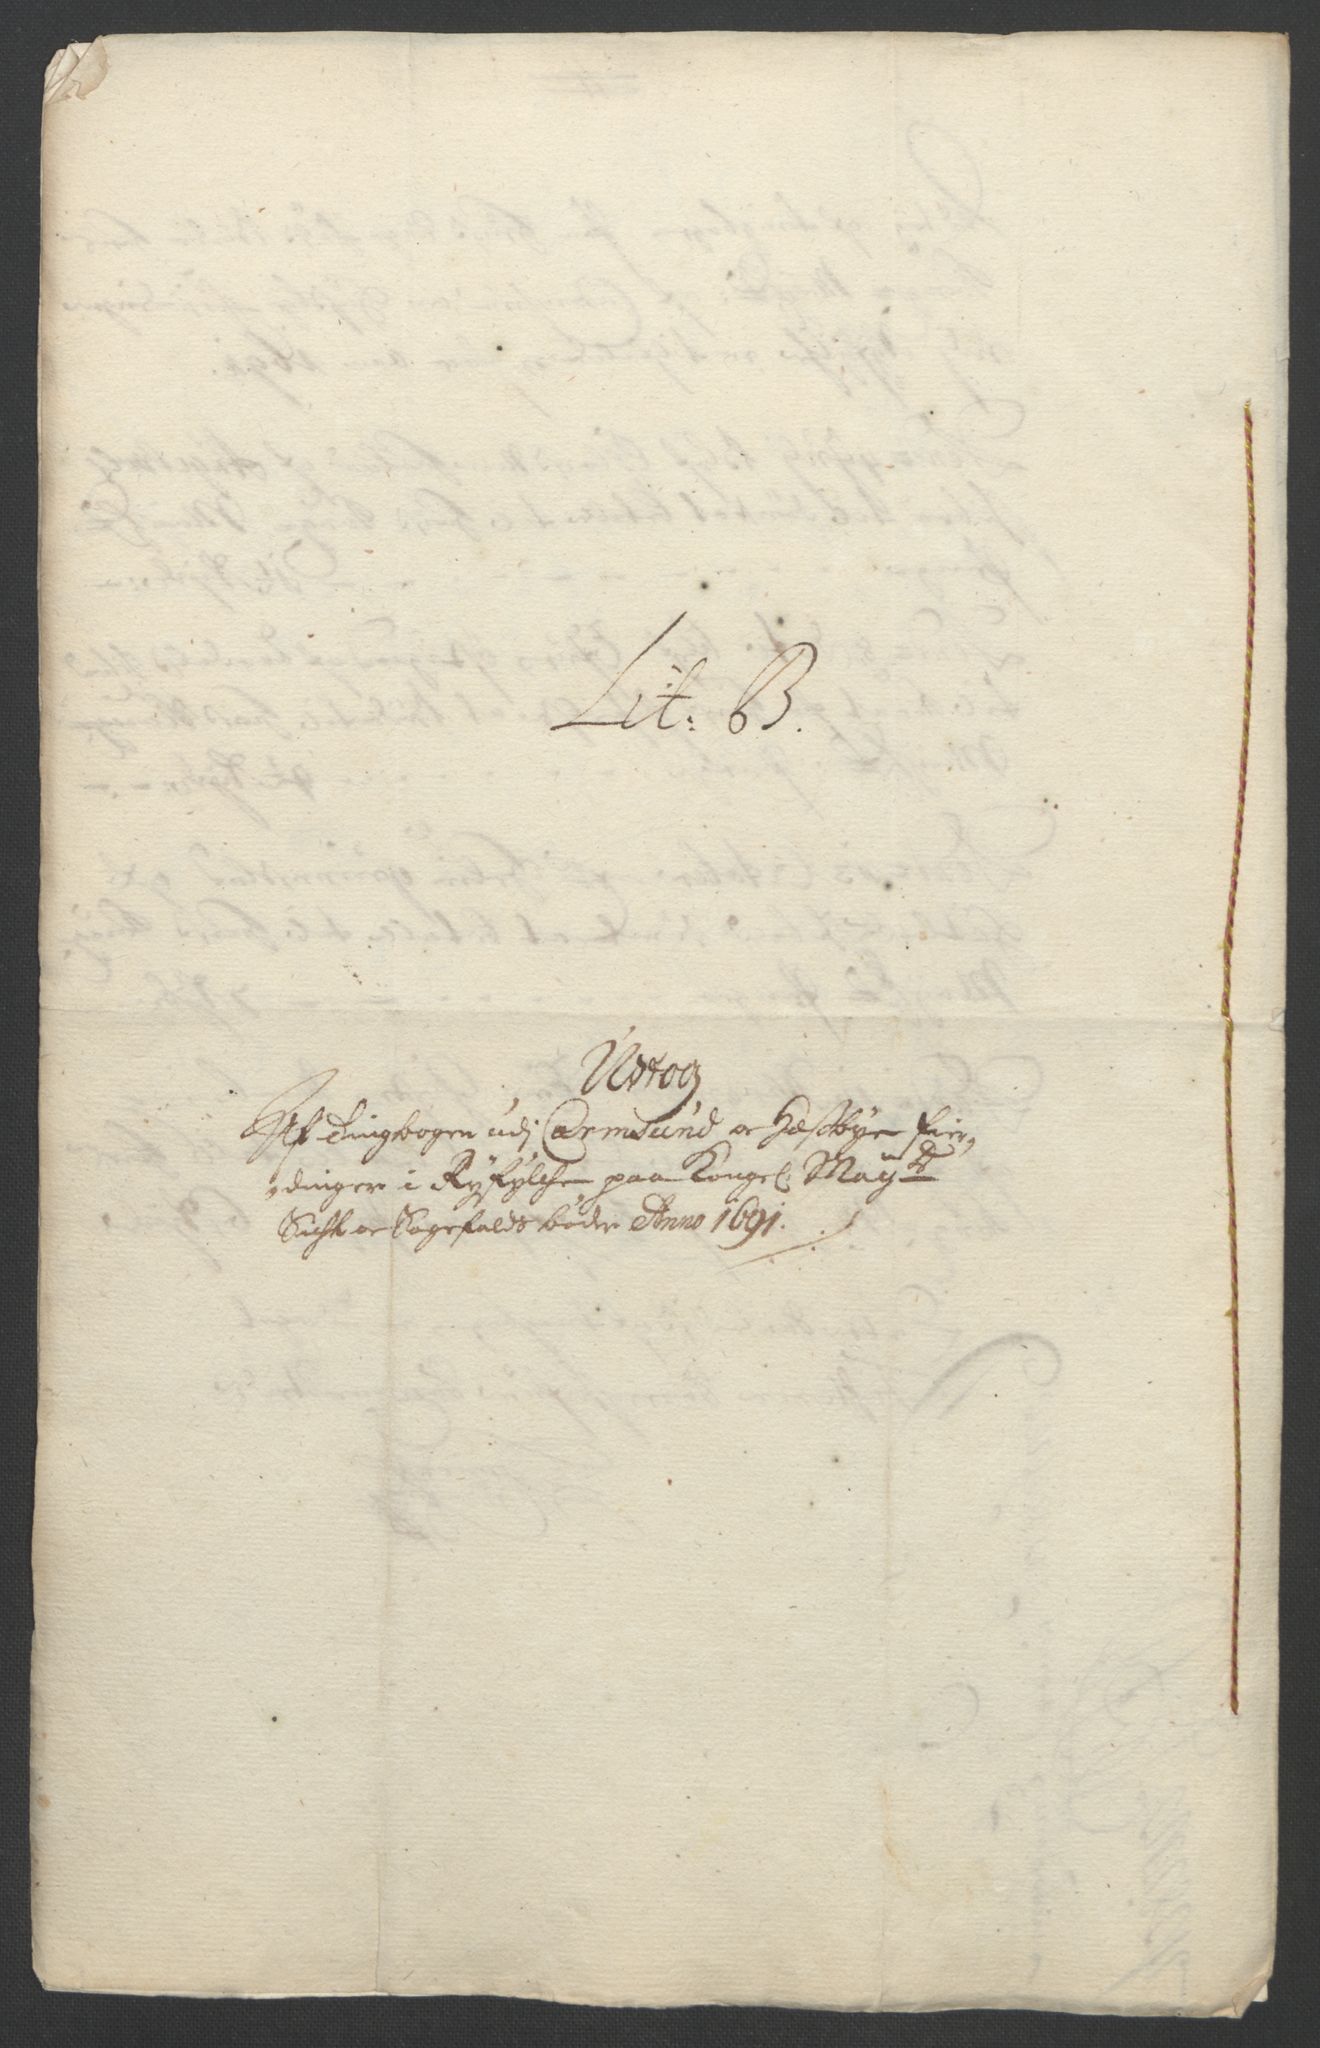 Lit: B.
Udtog
Af Tingbogen udj Carmsund oc Hæstbye fier,
dinger i Ryfylche paa Kongel: May:tt
Sicht oc Sagefalds bøder Anno 1691.